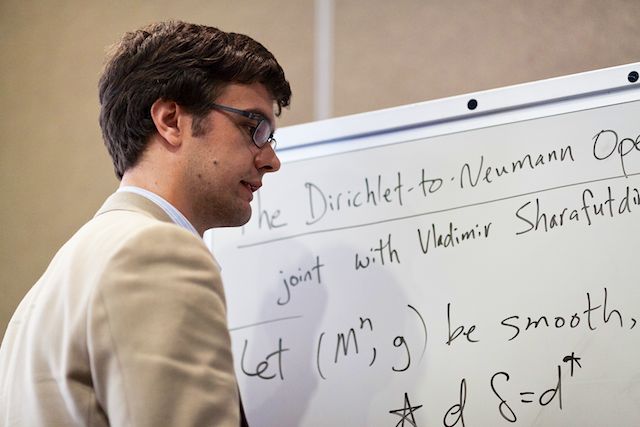 The Dirichlet-to-Neumann Ope
joint with Vladimir Sharafutdin
Let (Mⁿ, g) be smooth,
★ d δ=d*